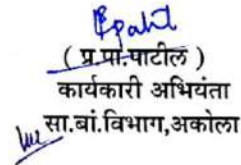 ( प्र.पा.पाटील )
कार्यकारी अभियंता
सा.बां.विभाग,अकोला